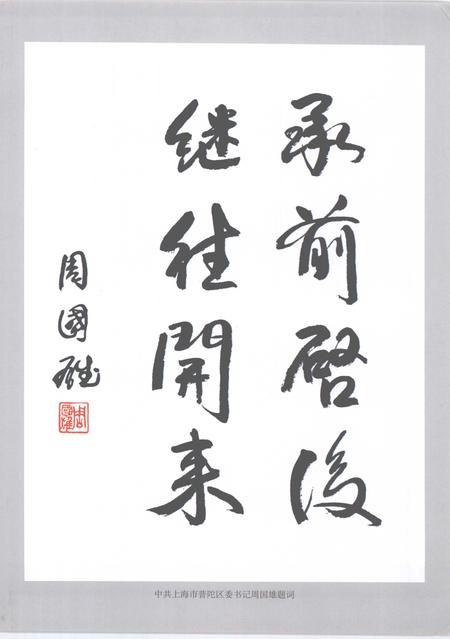 承前啓後
继往開来
周國雄
中共上海市普陀区委书记周国雄题词